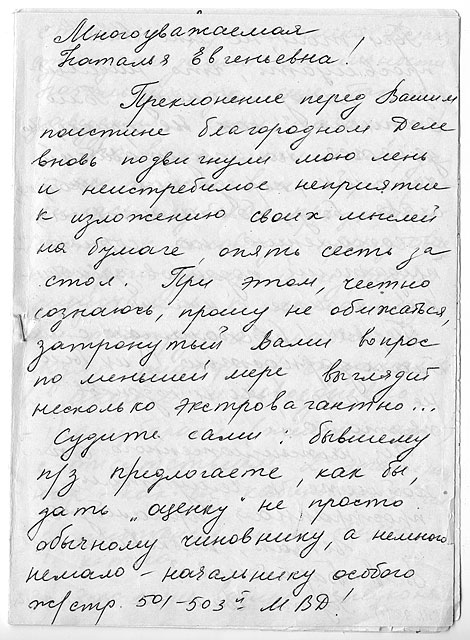 Многоуважаемая
Наталья Евгеньевна!
Преклонение перед Вашим
поистине благородном Деле
вновь подвигнули мою лень
и неистребимое неприятие
к изложению своих мыслей
на бумаге, опять сесть за
стол. При этом, честно
сознаюсь, прошу не обижаться,
затронутый Вами вопрос
по меньшей мере выглядит
несколько экстровагантно...
Судите сами: бывшему
п/з предлогаете, как бы,
дать „оценку" не просто
обычному чиновнику, а немного
немало – начальнику особого
ж/стр. 501-503й МВД!